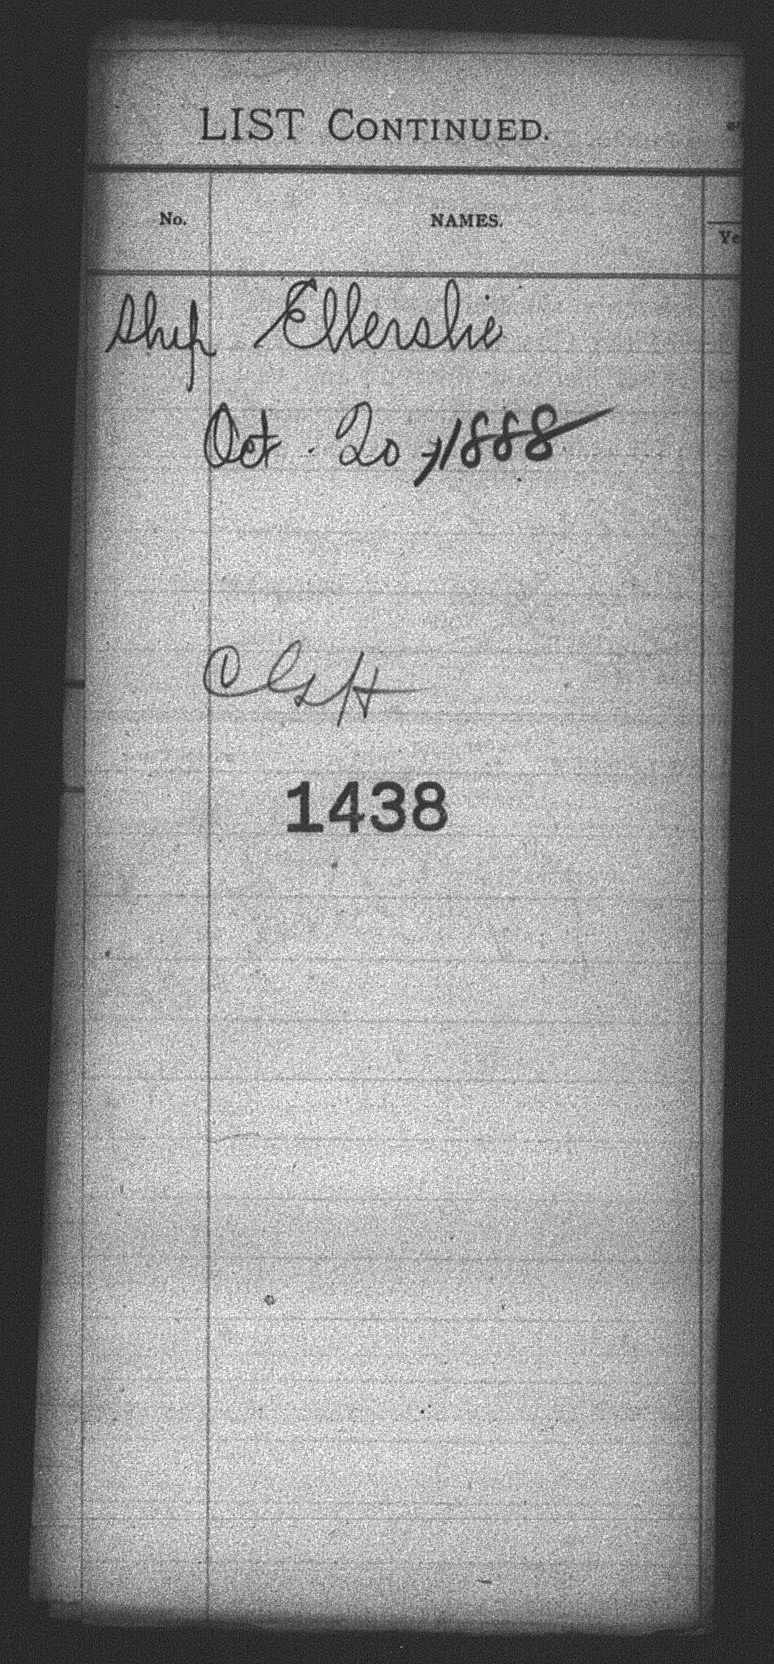 LIST CONTINUED.
No. NAMES. Ye
Ship Ellerslie
Oct. 20, 1888
1438